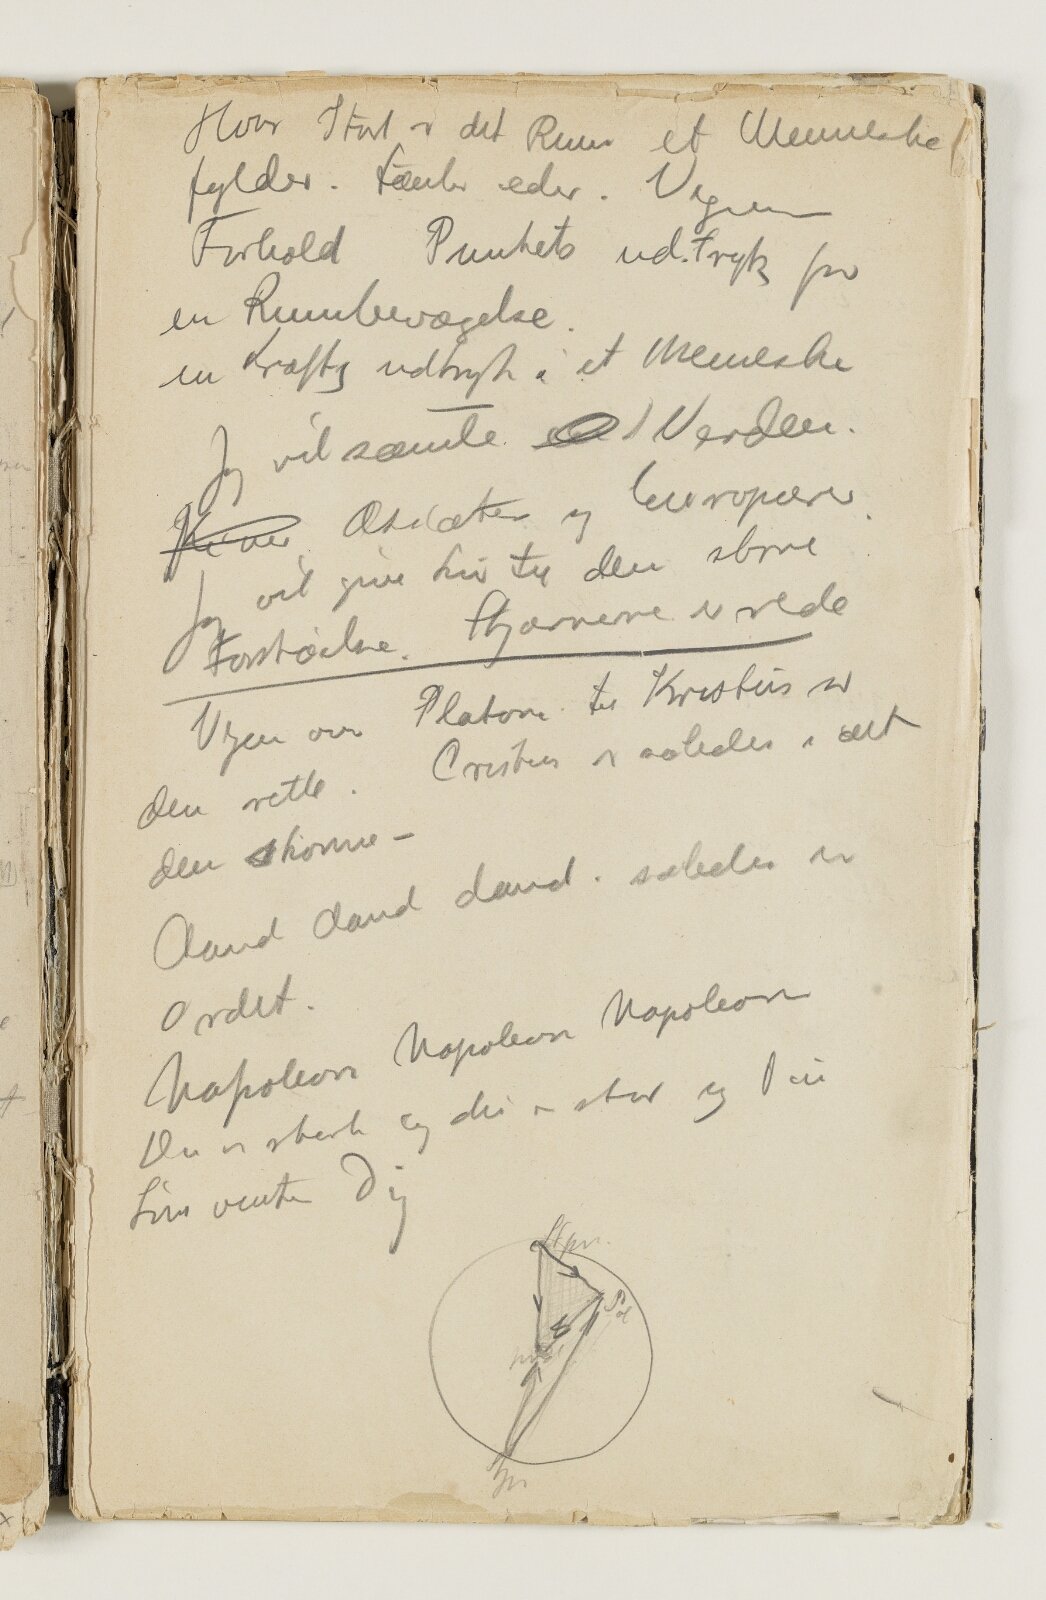 Hvor Stort er det Rum et Menneske
fylder. tænk eder. Vegnen
Forhold Punkets ud.tryk for
en Rumbevægelse.
en Krafts udtryk i et Menneske
Jeg vil samle Verden.
Asiater og Europæere.
Jeg vil give Liv til den store
Forståelse. Stjærnerne er rede
Vejen over Platon til Kristus er
den rette. Cristus er således i alt
den skönne -
Aand Aand Aand. således er
Ordet.
Napoleon Napoleon Napoleon
Du er stærk og du er stor og
venter Dig